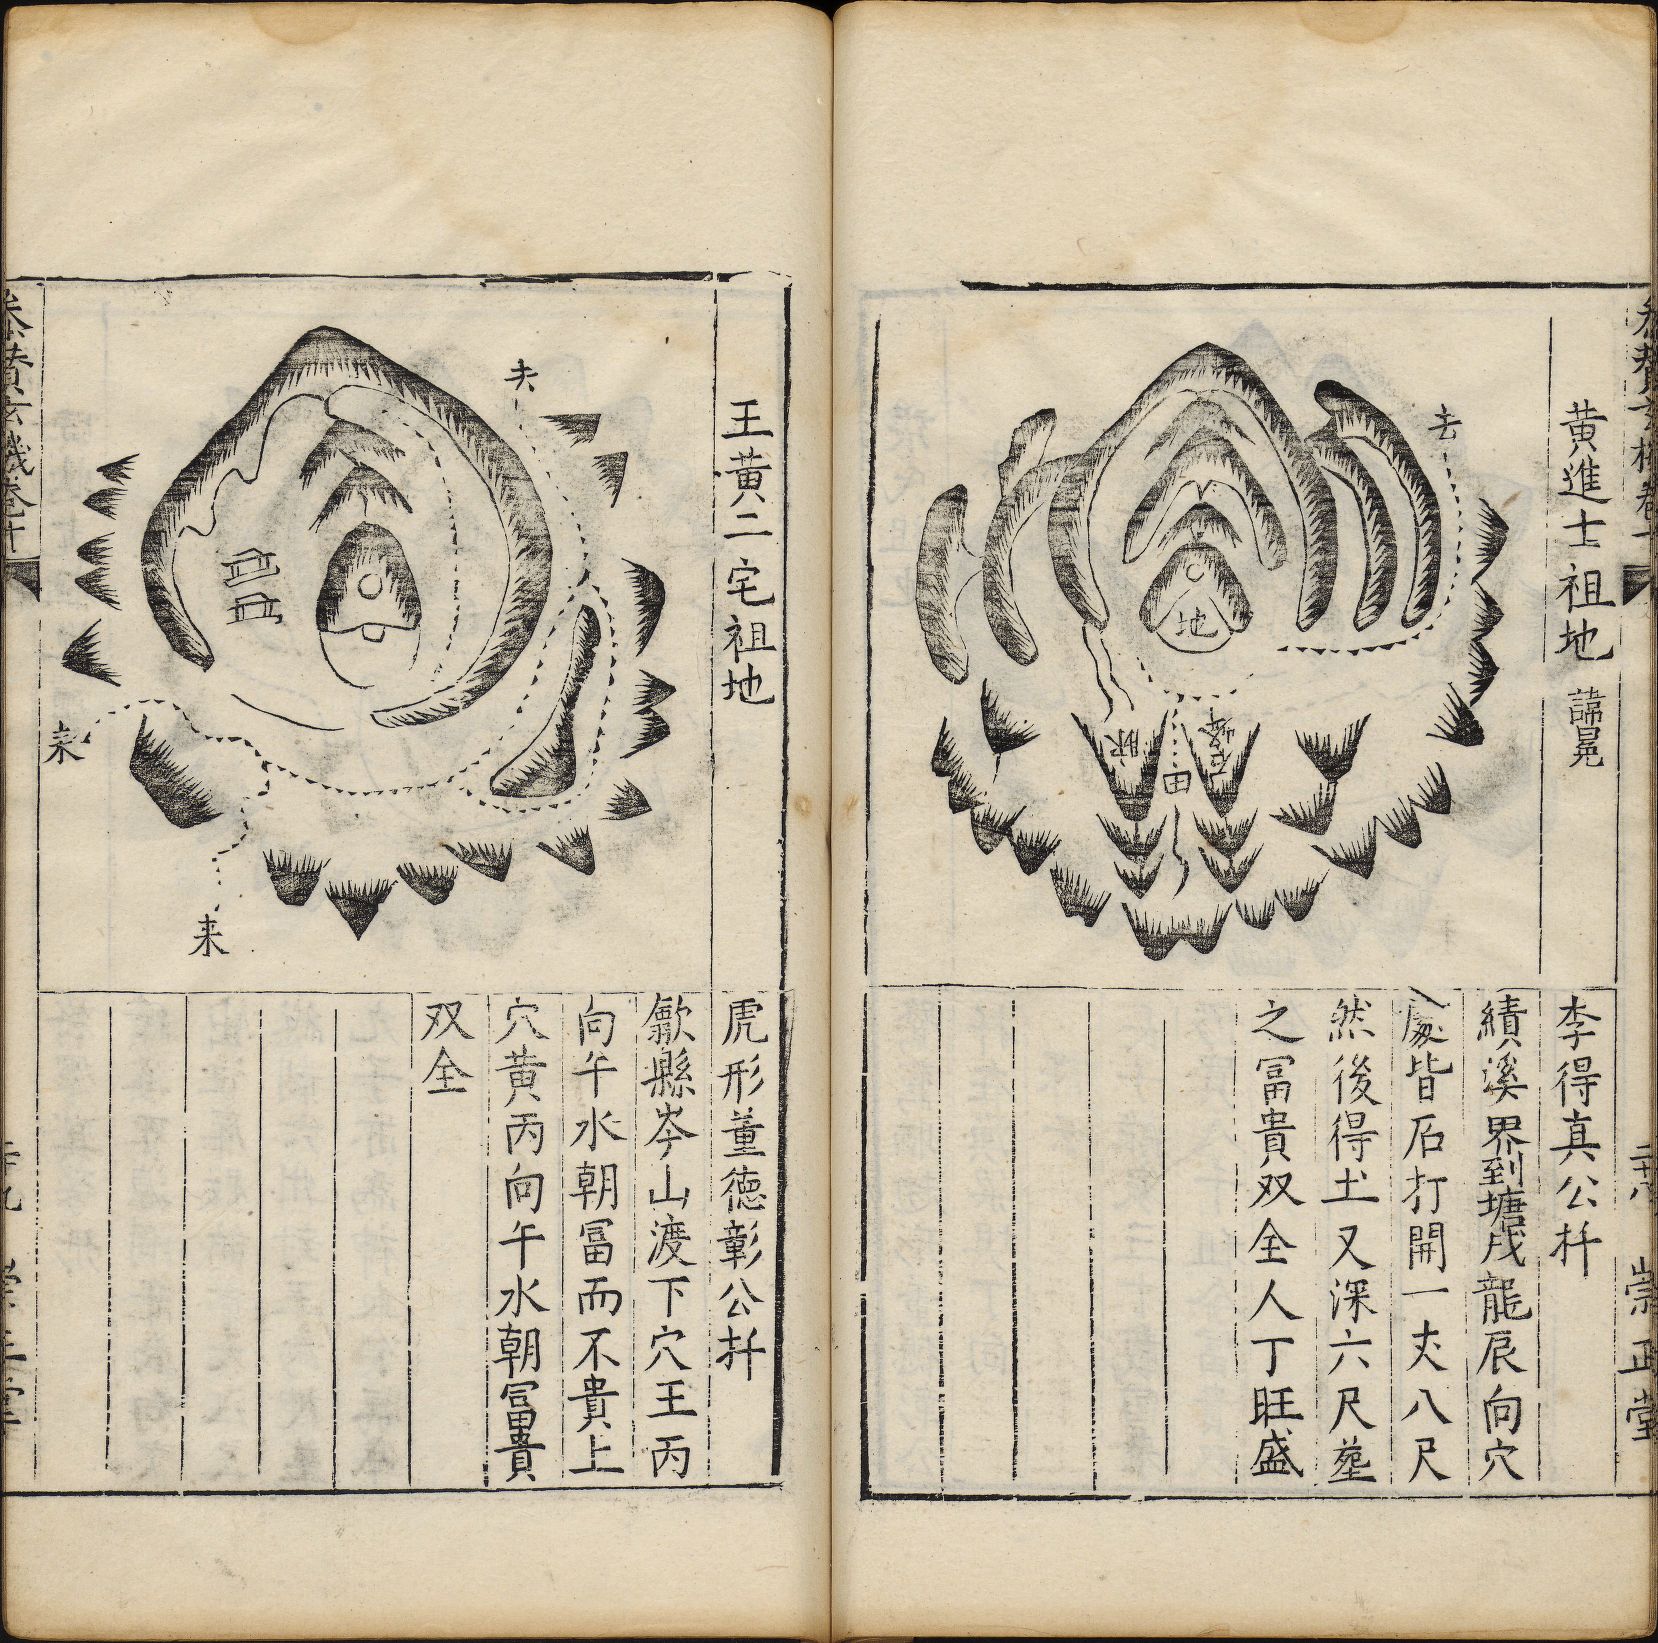 黄進士祖地 諱歸晃
去
地
田
石峰
脉
李得真公扦
績溪界到塘戌龍辰向穴
處皆石打開一丈八尺
然後得土又深六尺塟
之冨貴双全人丁旺盛
崇正堂
王黃二宅祖地
去
来
来
虎形董德彰公扦
歙縣岑山渡下穴王丙
向午水朝冨而不貴上
穴黄丙向午水朝冨貴
双全